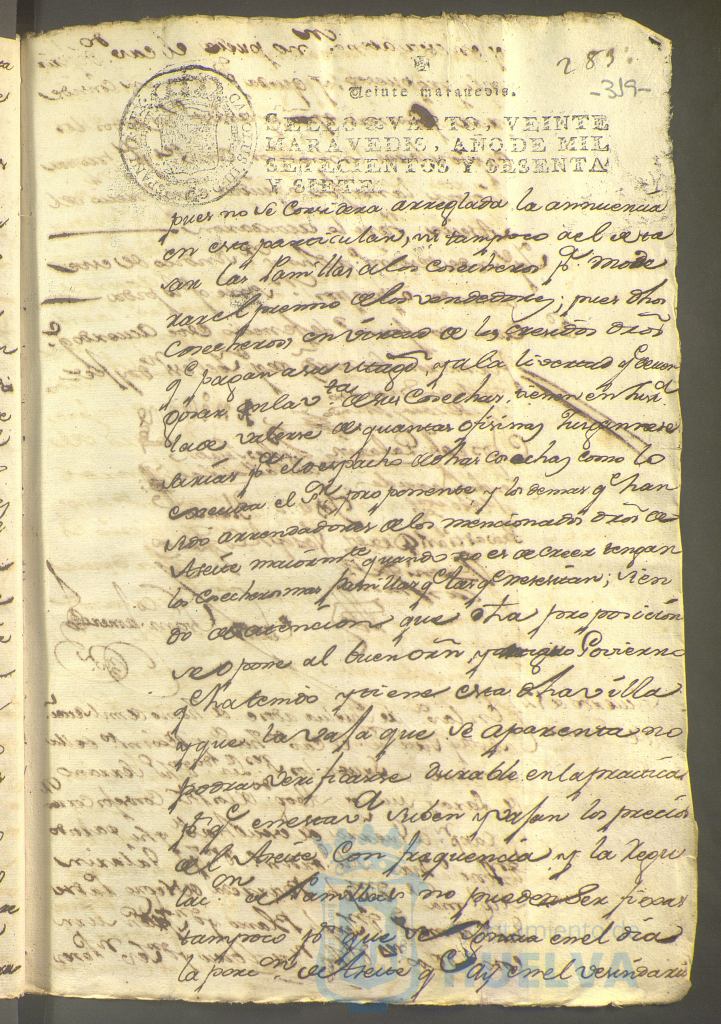 283.
-319-
Veinte maravedis.
SELLO QVARTO, VEINTE
MARAVEDIS, AÑO DE MIL
SETECIENTOS Y SESENTA
Y SIETE.
pues no se considera arreglada la annuencia
en este particular, ni tampoco el
las Panillas a los cosecheros pª. mode
rar el premio de los vendedores; pues dhos
Cosecheros en virtud de los cresidos dros
qe. pagan a su Magd. y a la livertad qe.
gozan en la vta. de sus Cosechas, tienen en
la de valerse de quantas ofisinas
sarias pª. el despacho de dhas cosechas como lo
executa el proponente y los demas qe. han
sido arrendadores de los mencionados dros de
Aseite maiormte. quando no es de creer tengan
los Cosecheros mas panillas qe. las qe. nesesitan; sien
do de atencion que dha proposicion
se opone al buen orn. y antiguo Govierno
qe. ha tenido y tiene esta dha villa
y que la vaja que se aparenta no
podra verificarse durable en la practica
pr. qe. en esta vª. suben y vajan los precios
del Aseite con frequencia y la Regu
lacn. de Panillas no pueden ser fixas
tampoco pr. que se Ignora en el dia
la porcon. de Aseite qe. ay en el vesindario
Ayuntamiento de
HUELVA